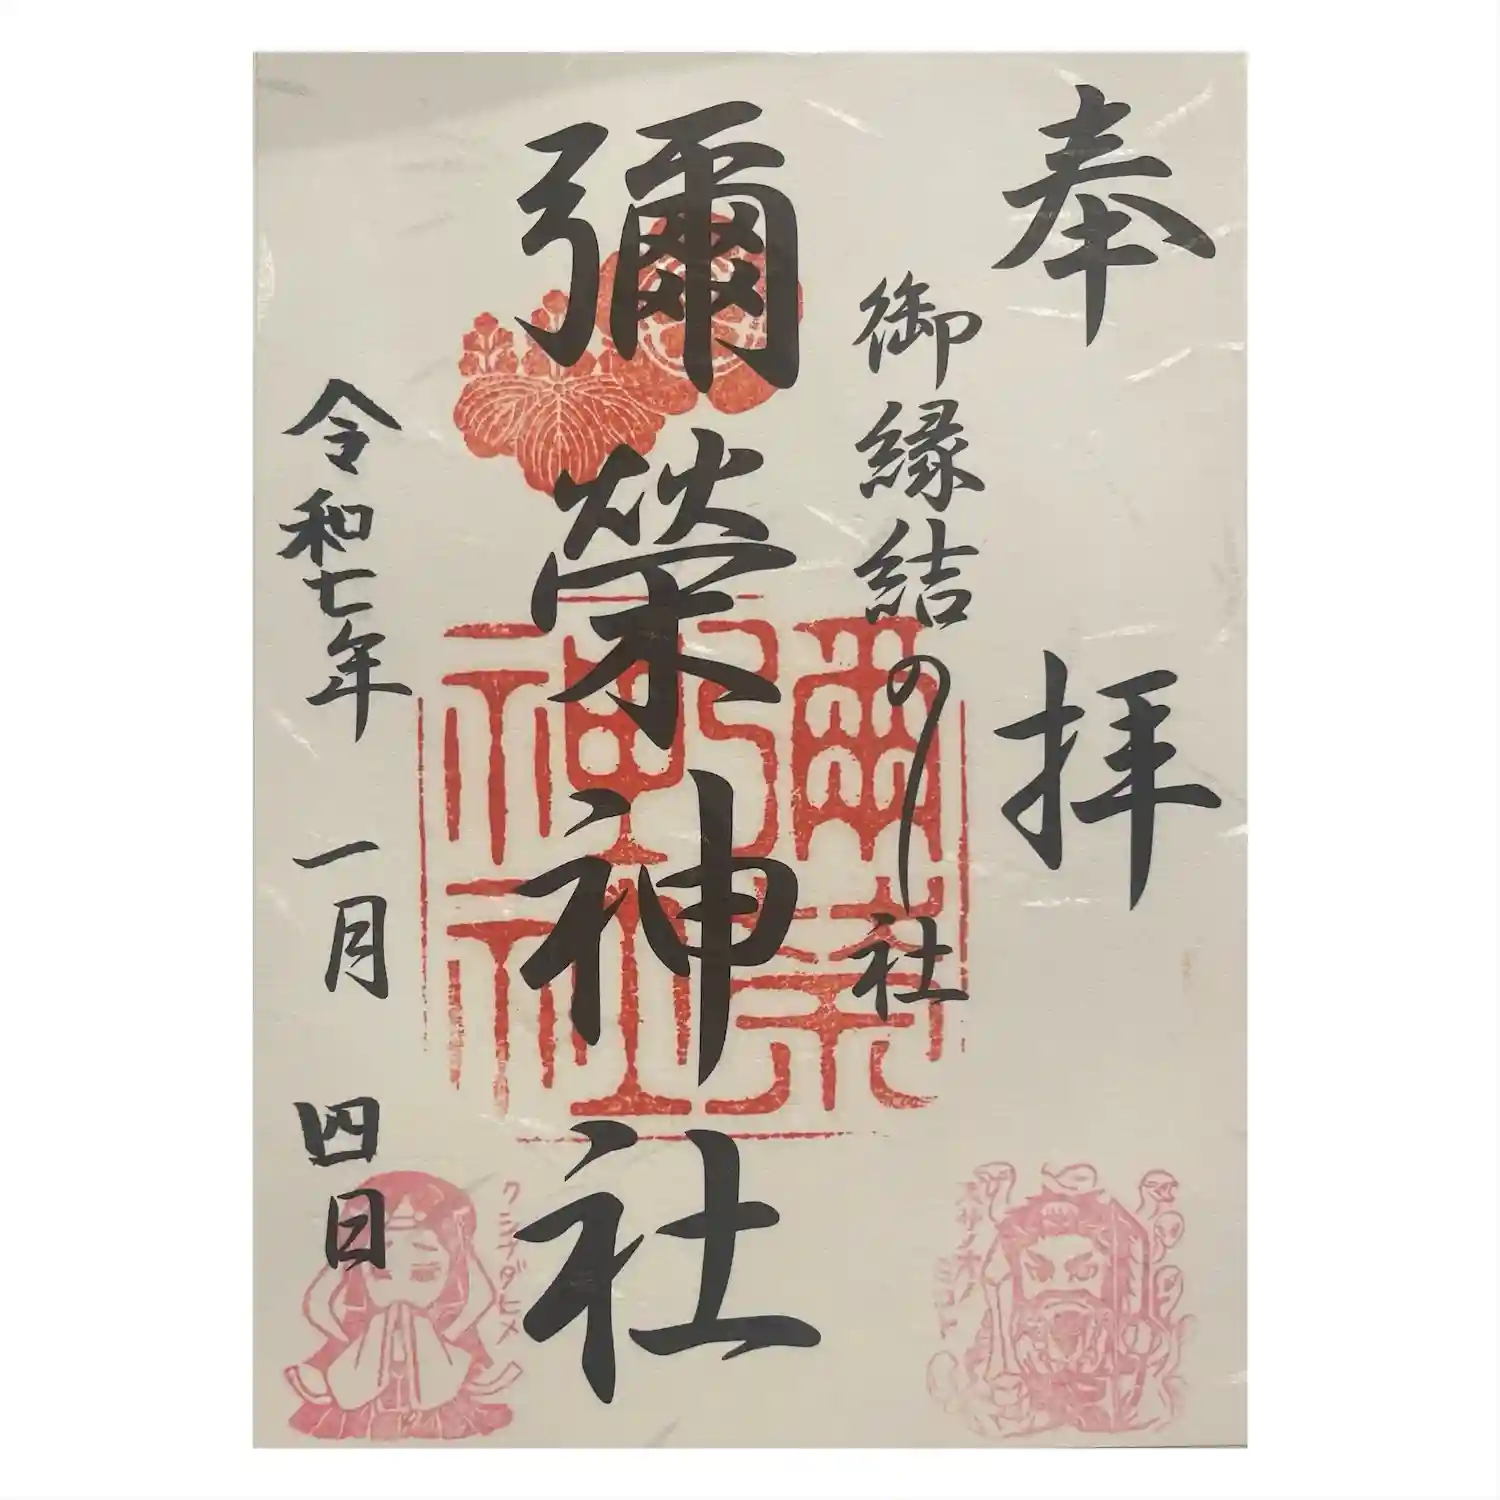 奉拝
御縁結の社
彌榮神社
令和七年一月四日
彌榮
神社
スサノオノミコト
クシナダヒメ